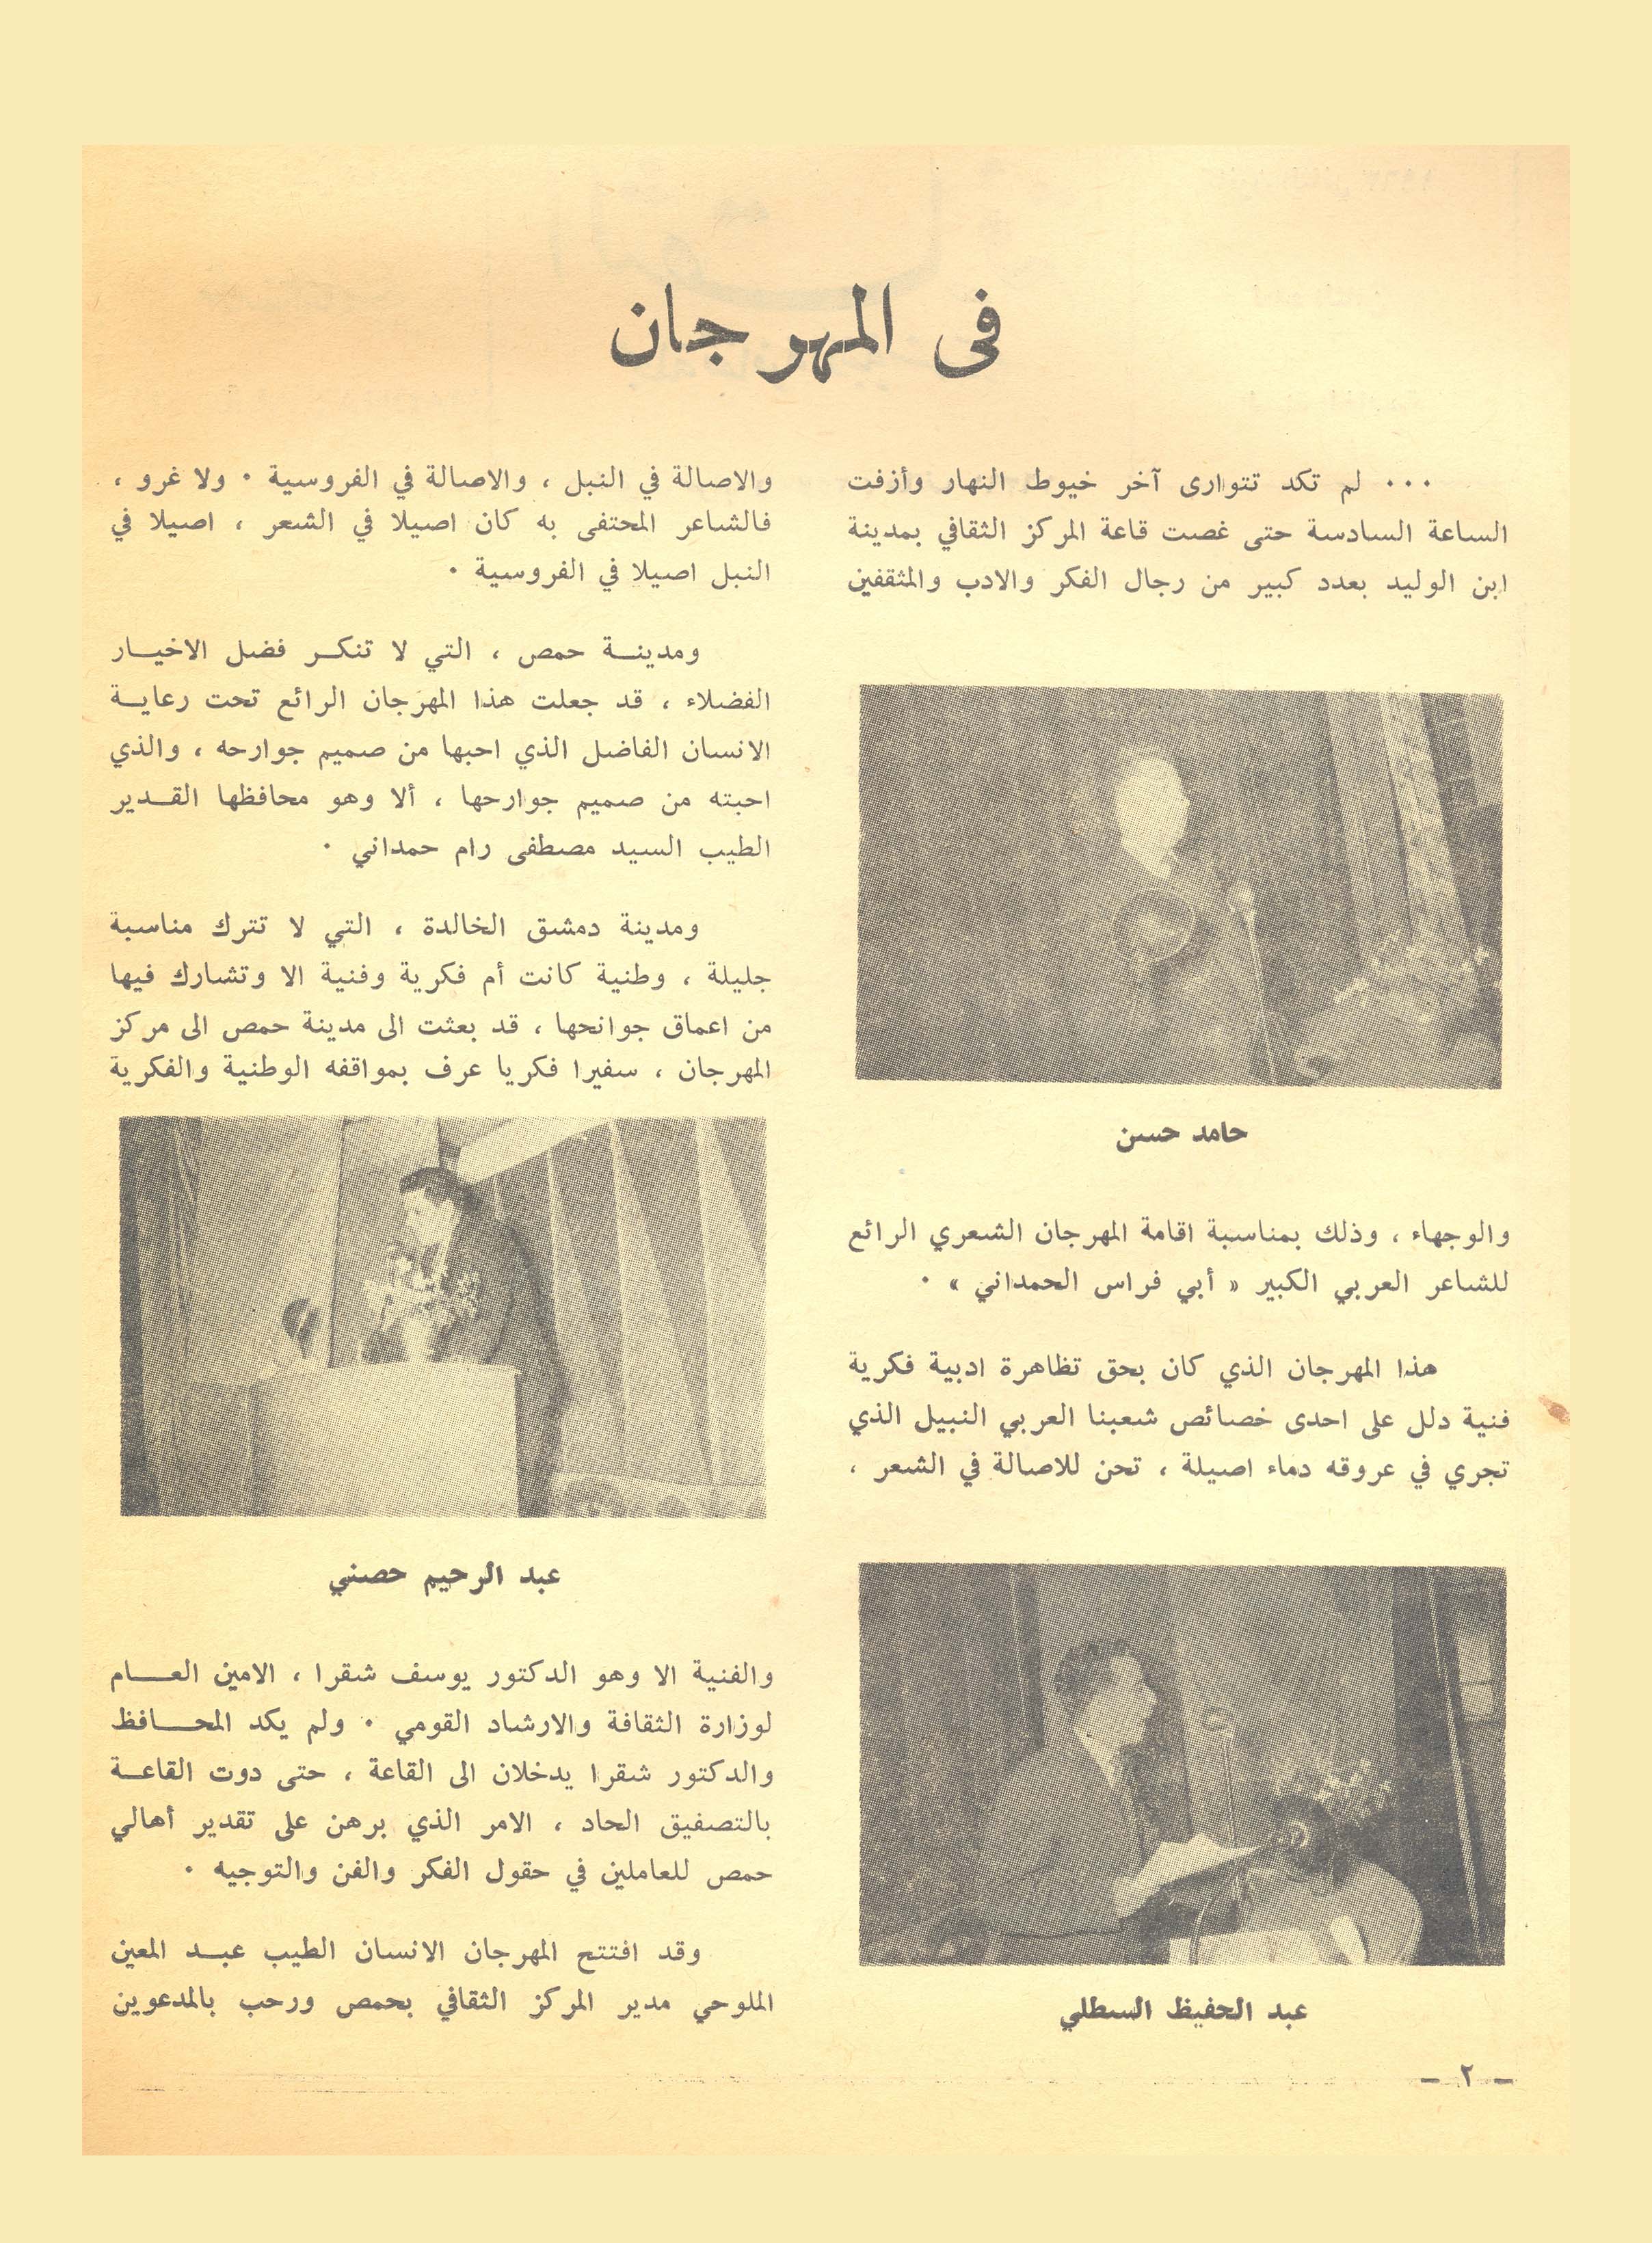 في المهرجان
... لم تكد تتوارى آخر خيوط النهار وأزفت
الساعة السادسة حتى غصت قاعة المركز الثقافي بمدينة
ابن الوليد بعدد كبير من رجال الفكر والادب والمثقفين
حامد حسن
والوجهاء ، وذلك بمناسبة اقامة المهرجان الشعري الرائع
للشاعر العربي الكبير « أبي فراس الحمداني » .
هذا المهرجان الذي كان بحق تظاهرة ادبية فكرية
فنية دلل على احدى خصائص شعبنا العربي النبيل الذي
تجري في عروقه دماء اصيلة ، تحن للاصالة في الشعر ،
عبد الحفيظ السطلي
والاصالة في النبل ، والاصالة في الفروسية . ولا غرو ،
فالشاعر المحتفى به كان اصيلا في الشعر ، اصيلا في
النبل اصيلا في الفروسية .
ومدينة حمص ، التي لا تنكر فضل الاخيار
الفضلاء ، قد جعلت هذا المهرجان الرائع تحت رعاية
الانسان الفاضل الذي احبها من صميم جوارحه ، والذي
احبته من صميم جوارحها ، ألا وهو محافظها القدير
الطيب السيد مصطفى رام حمداني .
ومدينة دمشق الخالدة ، التي لا تترك مناسبة
جليلة ، وطنية كانت أم فكرية وفنية الا وتشارك فيها
من اعماق جوانحها ، قد بعثت الى مدينة حمص الى مركز
المهرجان ، سفيرا فكريا عرف بمواقفه الوطنية والفكرية
عبد الرحيم حصني
والفنية الا وهو الدكتور يوسف شقرا ، الامين العام
لوزارة الثقافة والارشاد القومي . ولم يكد المحافظ
والدكتور شقرا يدخلان الى القاعة ، حتى دوت القاعة
بالتصفيق الحاد ، الامر الذي برهن على تقدير أهالي
حمص للعاملين في حقول الفكر والفن والتوجيه .
وقد افتتح المهرجان الانسان الطيب عبد المعين
الملوحي مدير المركز الثقافي بحمص ورحب بالمدعوين
- ٢ -